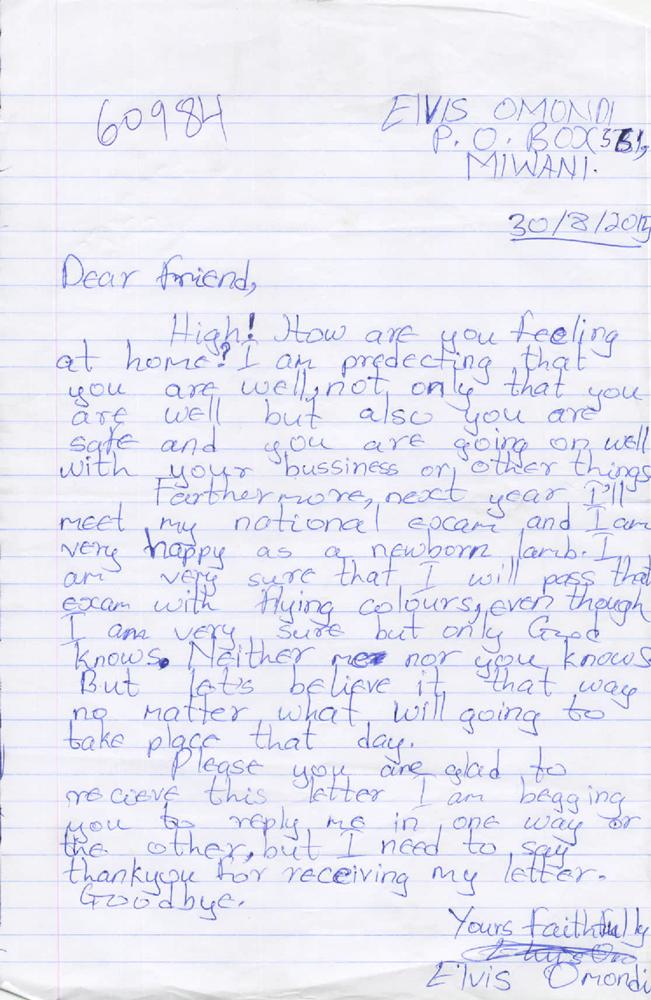 60984
ElVIS OMONDI
P. O. BOX 351,
MIWANI.
30/8/2015
Dear friend,
High! How are you feeling
at home? I am predecting that
you are well, not only that you
are well but also you are
safe and you are going on well
with your bussiness or other things
Farthermore, next year I'll
meet my national excam and I am
very happy as a newborn lamb. I
am very sure that I will pass that
exam with flying colours, even though
I am very sure but only God
knows. Neither me nor you knows
But let's believe it that way
no matter what will going to
take place that day.
Please you are glad to
recieve this letter I am begging
you to reply me in one way or
the other, but I need to say
thankyou for receiving my letter.
Goodbye.
Yours faithfully
Elvis Omondi